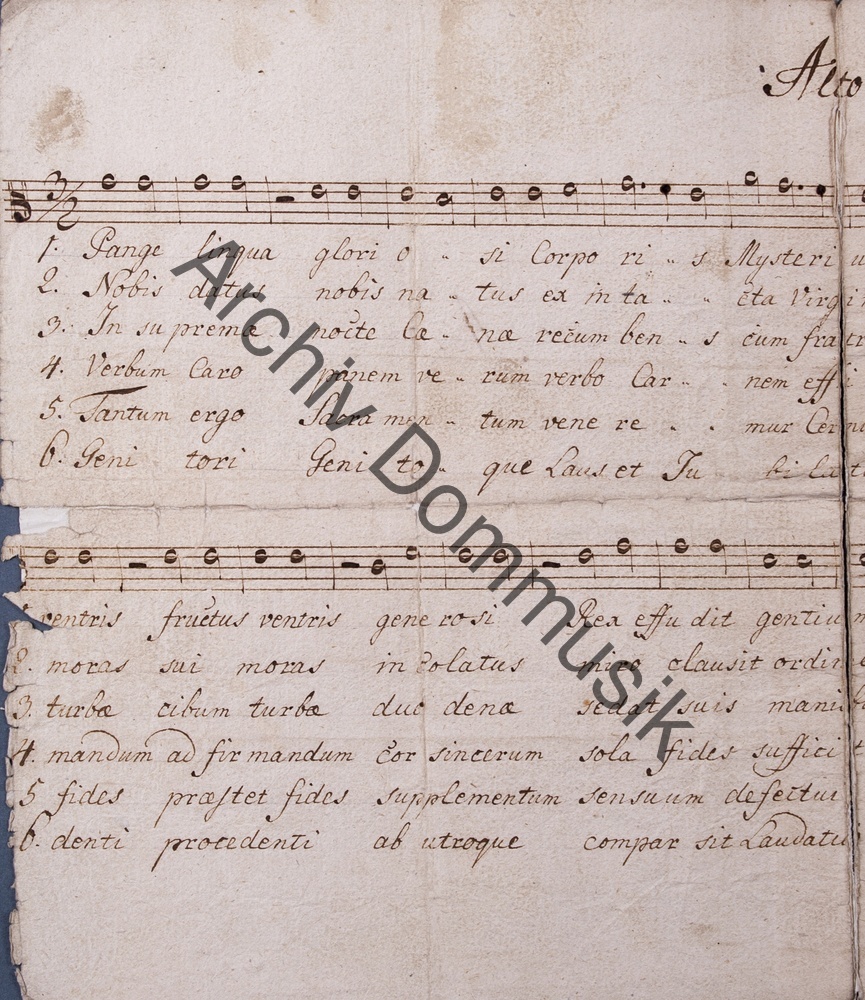 Alto
3/2
1. Pange lingua glori o si Corpo ri s Mysteri u
2. Nobis datus nobis na tus ex in ta cta Virgi
3. In supremæ nocte Cæ næ recum ben s cum fratr
4. Verbum Caro panem ve rum verbo Car nem effi
5. Tantum ergo Sacra men tum vene re mur Cernu
6. Geni tori Geni to que Laus et Ju bi la ti
ventris fructus ventris gene rosi Rex effu dit gentium
2. moras sui moras in colatus miro clausit ordine
3. turbæ cibum turbæ duo denæ se dat suis mani
4. mandum ad fir mandum cor sincerum sola fides suffici t
5 fides præstet fides supplementum sensuum defectui
6. denti procedenti ab utroque compar sit Laudatio
Archiv Dommusik